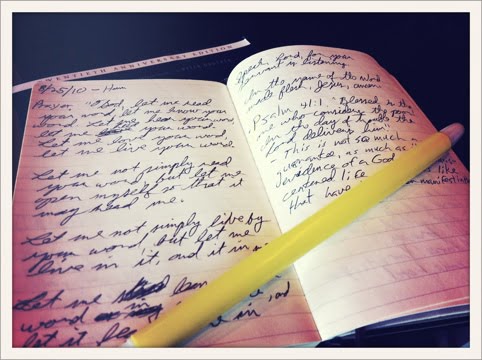 TWENTIETH ANNIVERSARY EDITION
8/25/10 - Home
Prayer: "O God, let me read
your word, let me know your
word. Let me hear your word,
let me your word.
Let me your word,
let me live your word.
Let me not simply read
your word, but let me
open myself so that it
may read me.
Let me not simply live by
your word, but let me
live in it, and it in me.
Let me
word
let it be in it, and
Speak, Lord, for your
servant is listening.
In the name of the Word
made flesh, Jesus, amen.
Psalm 41:1 "Blessed is the
one who considers the poor.
In the day of trouble the
Lord delivers him"
- This is not so much a
guarantee, as much as
evidence of a God
centered life is like
that have manifestation